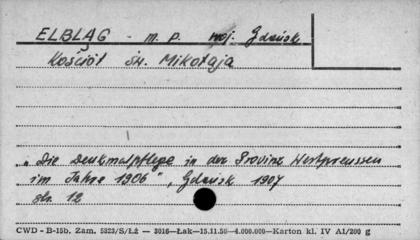 ELBLĄG - m. p. woj. Gdańsk
Kościół św. Mikołaja
„Die Denkmalpflege in der Provinz Westpreussen
im Jahre 1906", Gdańsk 1907
str. 12
CWD - B-15b. Zam. 5323/S/Łż — 3016—Łak—15.11.50—4.000.000—Karton kl. IV A1/200 g